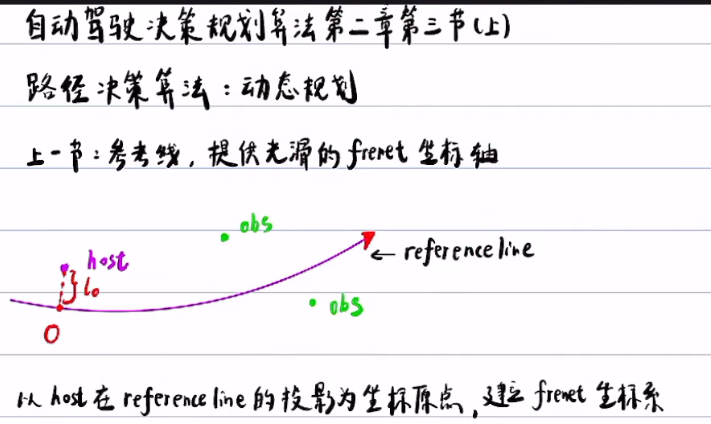 自动驾驶决策规划算法第二章第三节(上)
路径决策算法:动态规划
上一节:参考线,提供光滑的frenet坐标轴
obs
host
← reference line
l₀
obs
O
以host在reference line的投影为坐标原点,建立frenet坐标系